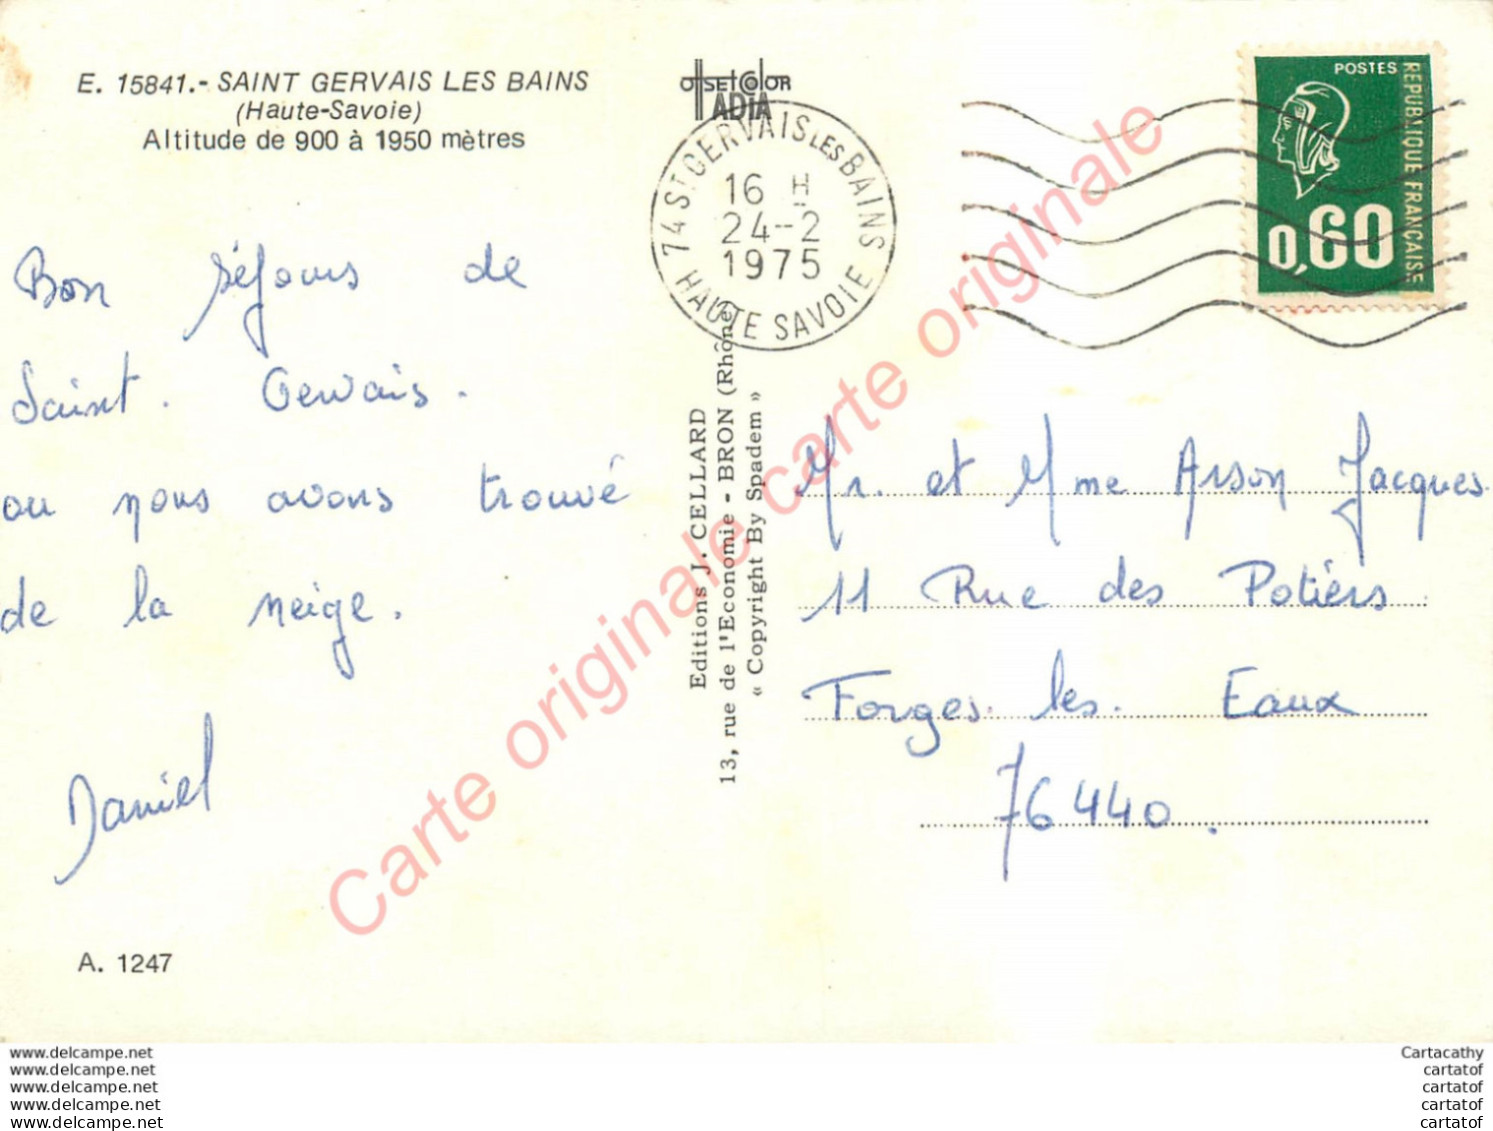 E. 15841.- SAINT GERVAIS LES BAINS
(Haute-Savoie)
Altitude de 900 à 1950 mètres
OffsetColor
ADIA
74 ST GERVAIS LES BAINS
16 H
24-2
1975
HAUTE SAVOIE
POSTES
REPUBLIQUE FRANÇAISE
0,60
Bon séjours de
Saint. Gervais.
ou nous avons trouvé
de la neige.
Daniel
A. 1247
Editions J. CELLARD
13, rue de l'Economie - BRON (Rhône)
« Copyright By Spadem »
Mr. et Mme Arson Jacques
11 Rue des Potiers
Forges. les. Eaux
76440.
Carte originale carte originale
www.delcampe.net
www.delcampe.net
www.delcampe.net
www.delcampe.net
www.delcampe.net
Cartacathy
cartatof
cartatof
cartatof
cartatof